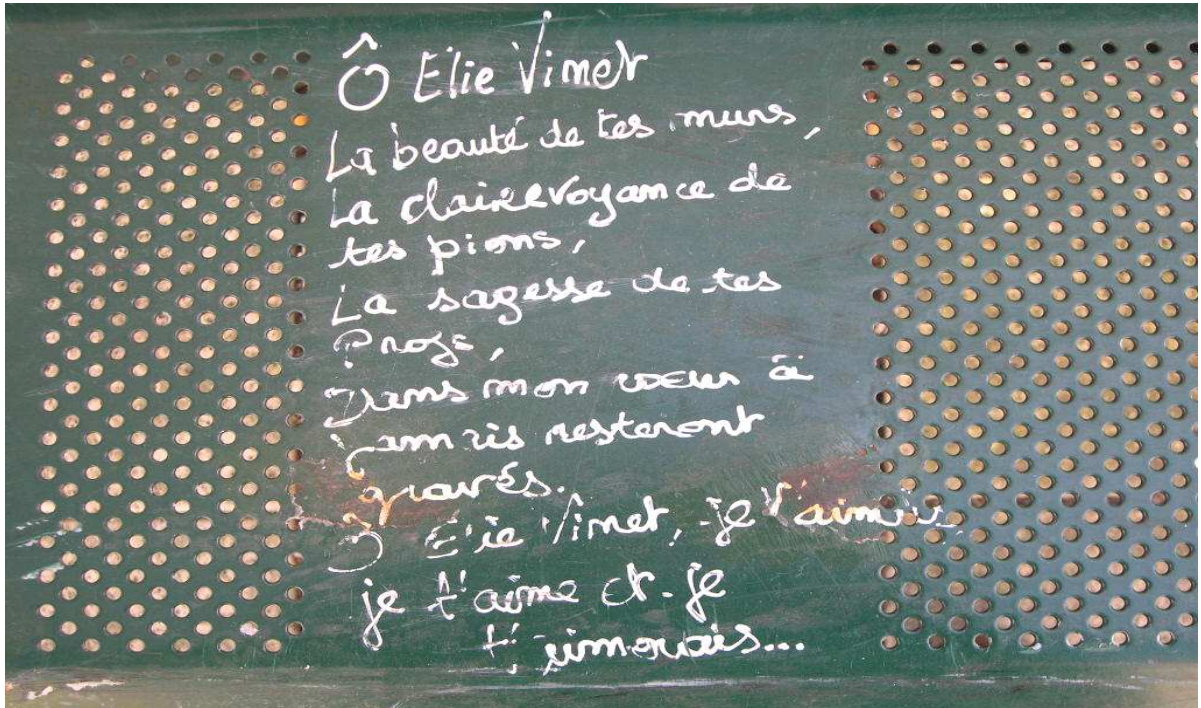 Ô Elie Vinet
La beauté de tes murs,
La clairevoyance de
tes pions,
La sagesse de tes
Profs,
Dans mon coeur à
jamais resteront
gravés.
Ô Elie Vinet, je t'aimais,
je t'aime et je
t'aimerais...